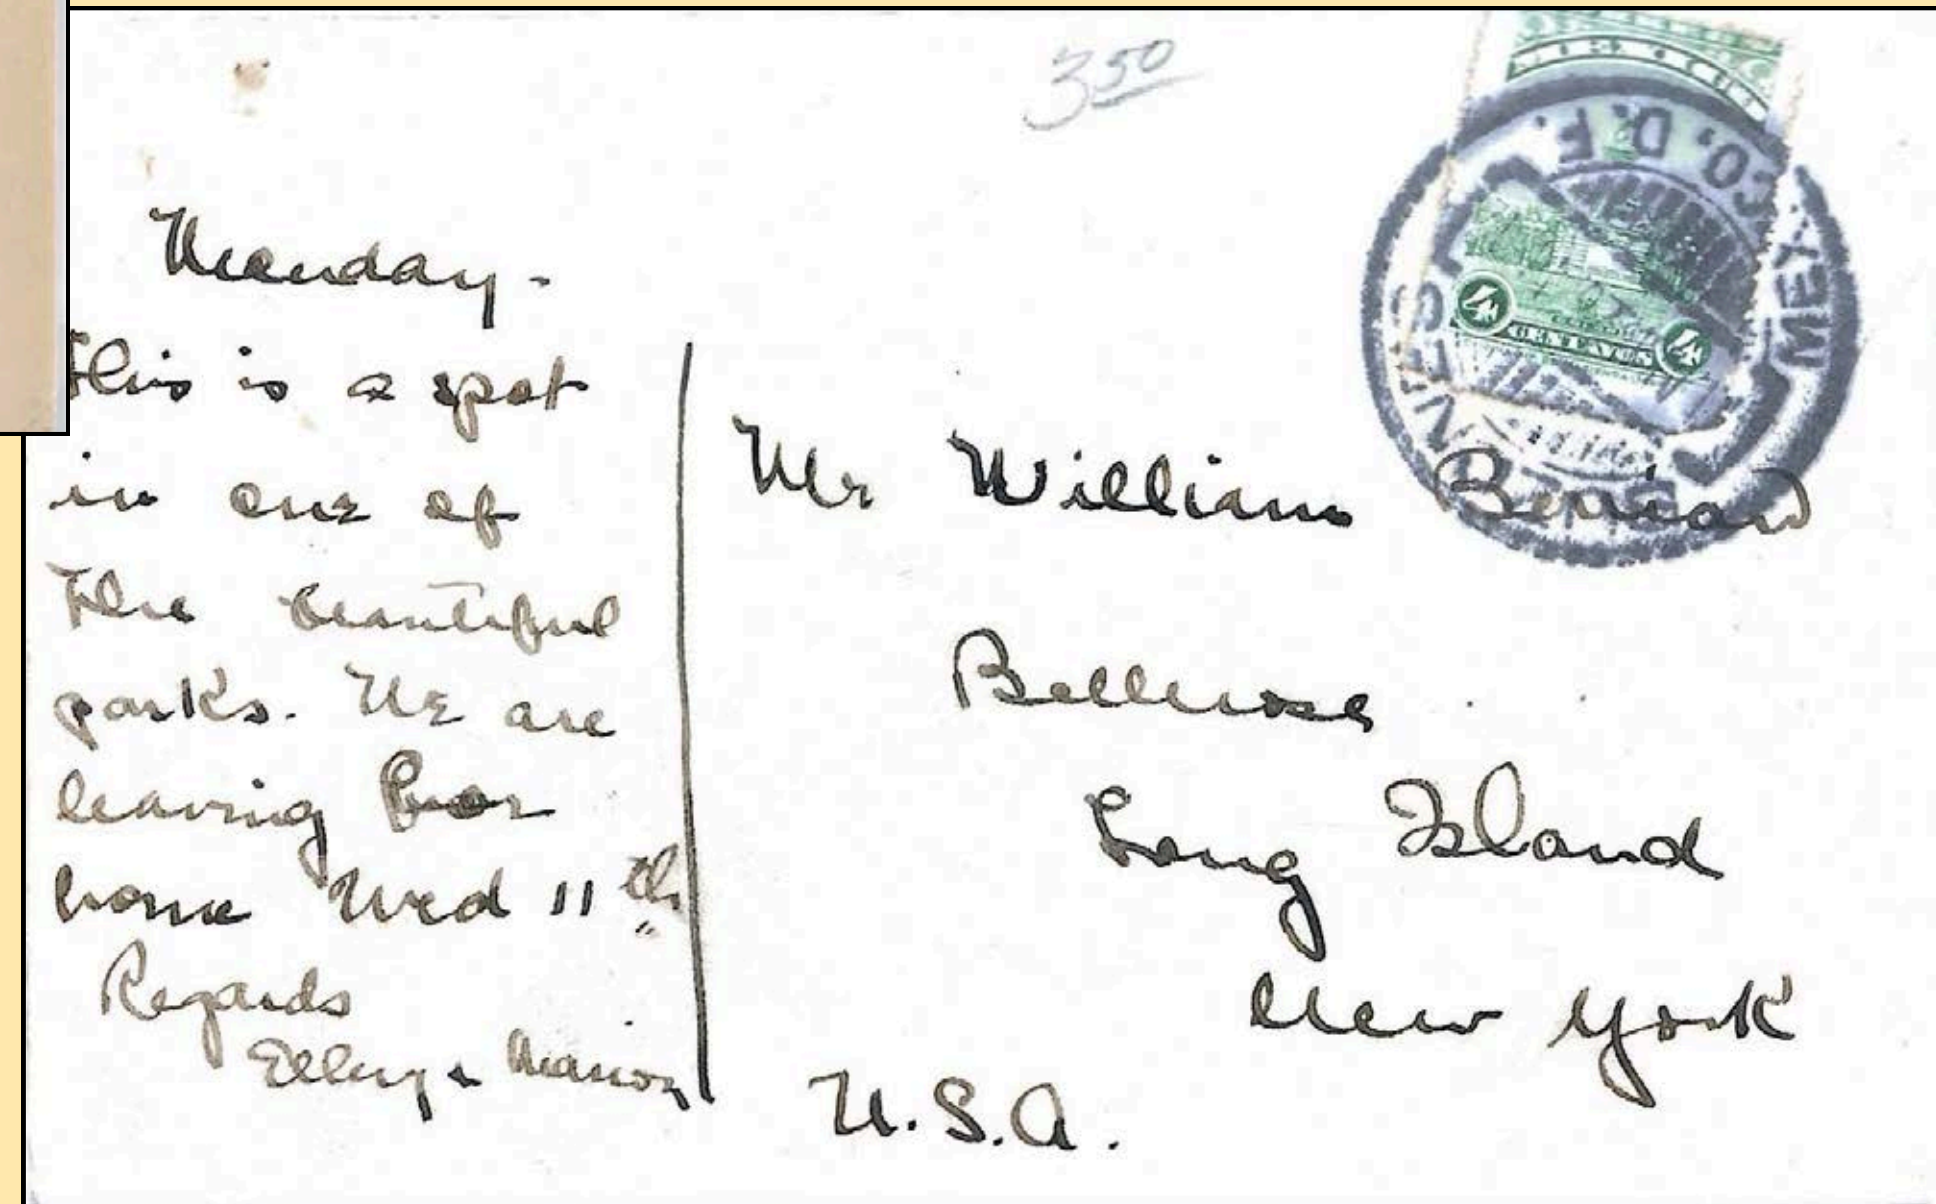 3.50
Monday -
this is a spot
in one of
the beautiful
parks. We are
leaving for
home Wed 11th
Regards
Ellery & Marion
Mr William
Bellerose
Long Island
New York
U.S.A.
MEXICO, D. F.
4 CENTAVOS 4